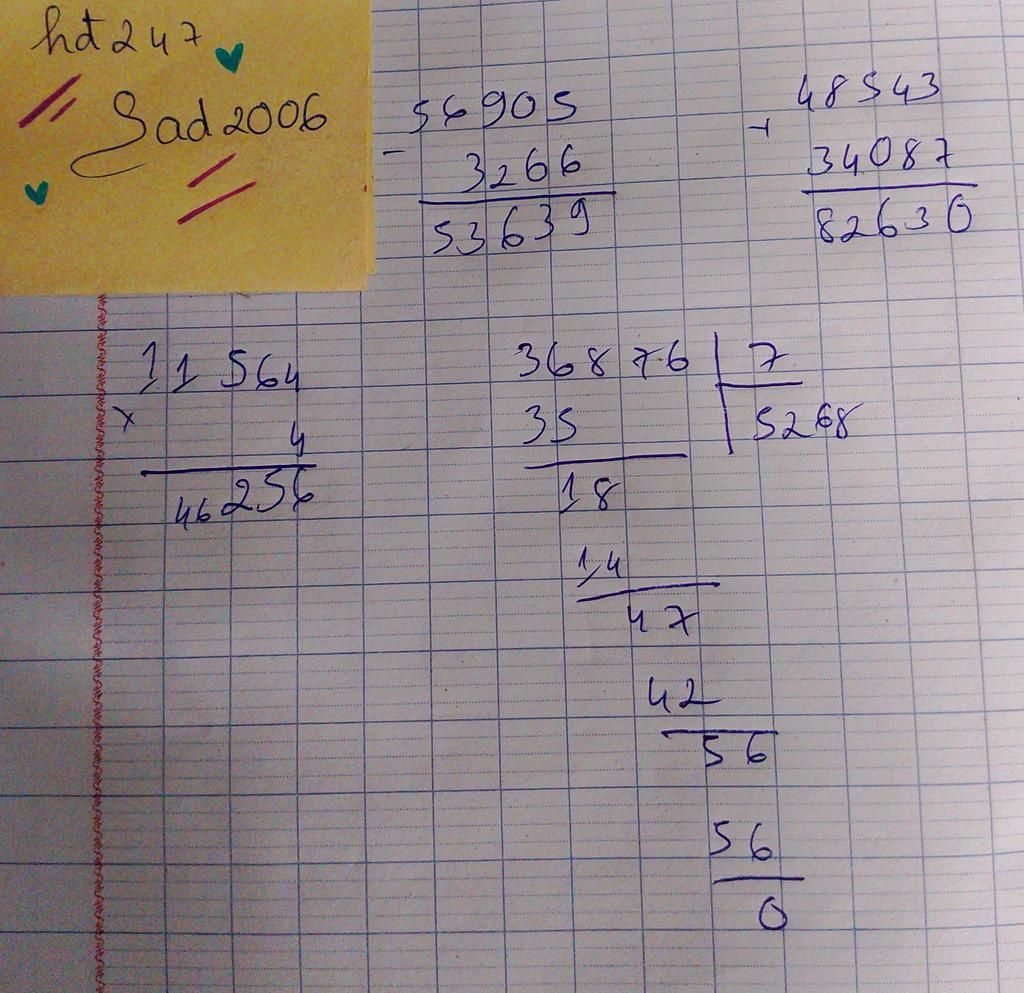 hd247
Sad2006
56905
- 3266
53639
48543
+
34087
82630
11564
x 4
46256
36876 | 7
35 | 5268
18
14
47
42
56
56
0